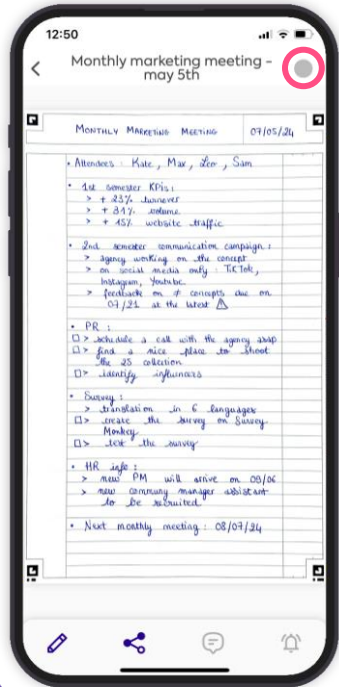 12:50
Monthly marketing meeting -
may 5th
MONTHLY MARKETING MEETING 07/05/24
• Attendees : Kate, Max, Leo, Sam
• 1st semester KPIs :
> + 23% turnover
> + 31% volume
> + 45% website traffic
• 2nd semester communication campaign :
> agency working on the concept
> on social media only : TikTok,
Instagram, Youtube
> feedback on ≠ concepts due on
07/21 at the latest ⚠
• PR :
☐ > schedule a call with the agency asap
☐ > find a nice place to shoot
the 25 collection
☐ > identify influencers
• Survey :
> translation in 6 languages
☐ > create the survey on Survey
Monkey
☐ > test the survey
• HR info :
> new PM will arrive on 09/06
> new community manager assistant
to be recruited
• Next monthly meeting : 08/07/24